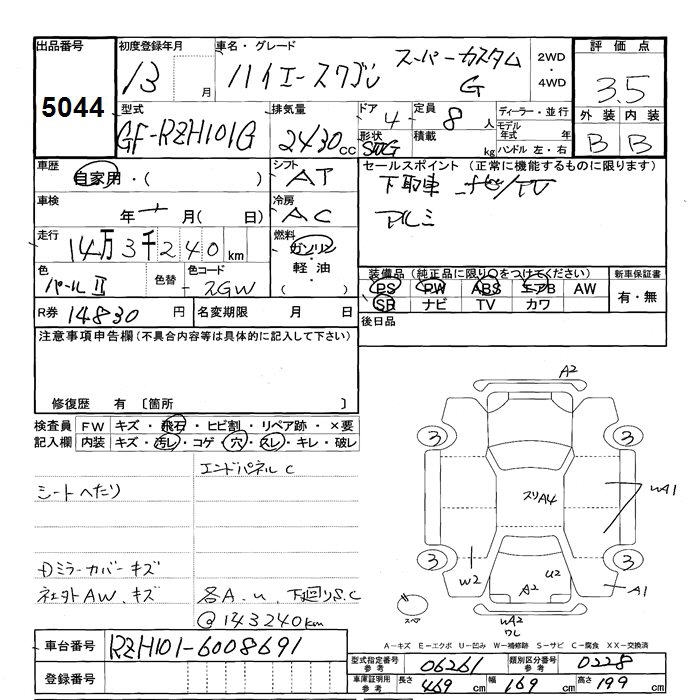 出品番号 初度登録年月 車名・グレード 評価点
5044 13 月 ハイエースワゴン スーパーカスタム G 2WD ・ 4WD 3.5
外装 内装
B B
型式 排気量 ドア 定員 ディーラー・並行
GF-RZH101G 2430 cc 4 8 人 モデル 年式 年
形状 積載 kg ハンドル 左・右
車歴 シフト セールスポイント (正常に機能するものに限ります)
自家用・( ) AT 下取車
車検 冷房 アルミ
年 月( 日) AC
走行 燃料
14万3千240km ガソリン
・
軽油
・
( )
色 色替 色コード
パールⅡ
装備品(純正品に限り○をつけてください) 新車保証書
PS PW ABS エアB AW 有・無
SR ナビ TV カワ
R券 14830 円 名変期限 月 日 後日品
注意事項申告欄(不具合内容等は具体的に記入して下さい)
修復歴 有 〔箇所 〕
検査員 FW キズ・飛石・ヒビ割・リペア跡・×要
記入欄 内装 キズ・汚レ・コゲ・穴・スレ・キレ・破レ
エンドパネルC
シートへたり
Dミラーカバーキズ
社外AW、キズ 各A.U、下廻りS.C
@143240km
A2
3 3
スリA4 W1
3 3
W2 U2 A2 A1
スペア W2
ワレ
A-キズ E-エクボ U-凹み W-補修跡 S-サビ C-腐食 XX-交換済
車台番号 RZH101-6008691
登録番号
型式指定番号 参考 06261 類別区分番号 参考 0228
車庫証明用 参考 長さ 469 cm 幅 169 cm 高さ 199 cm